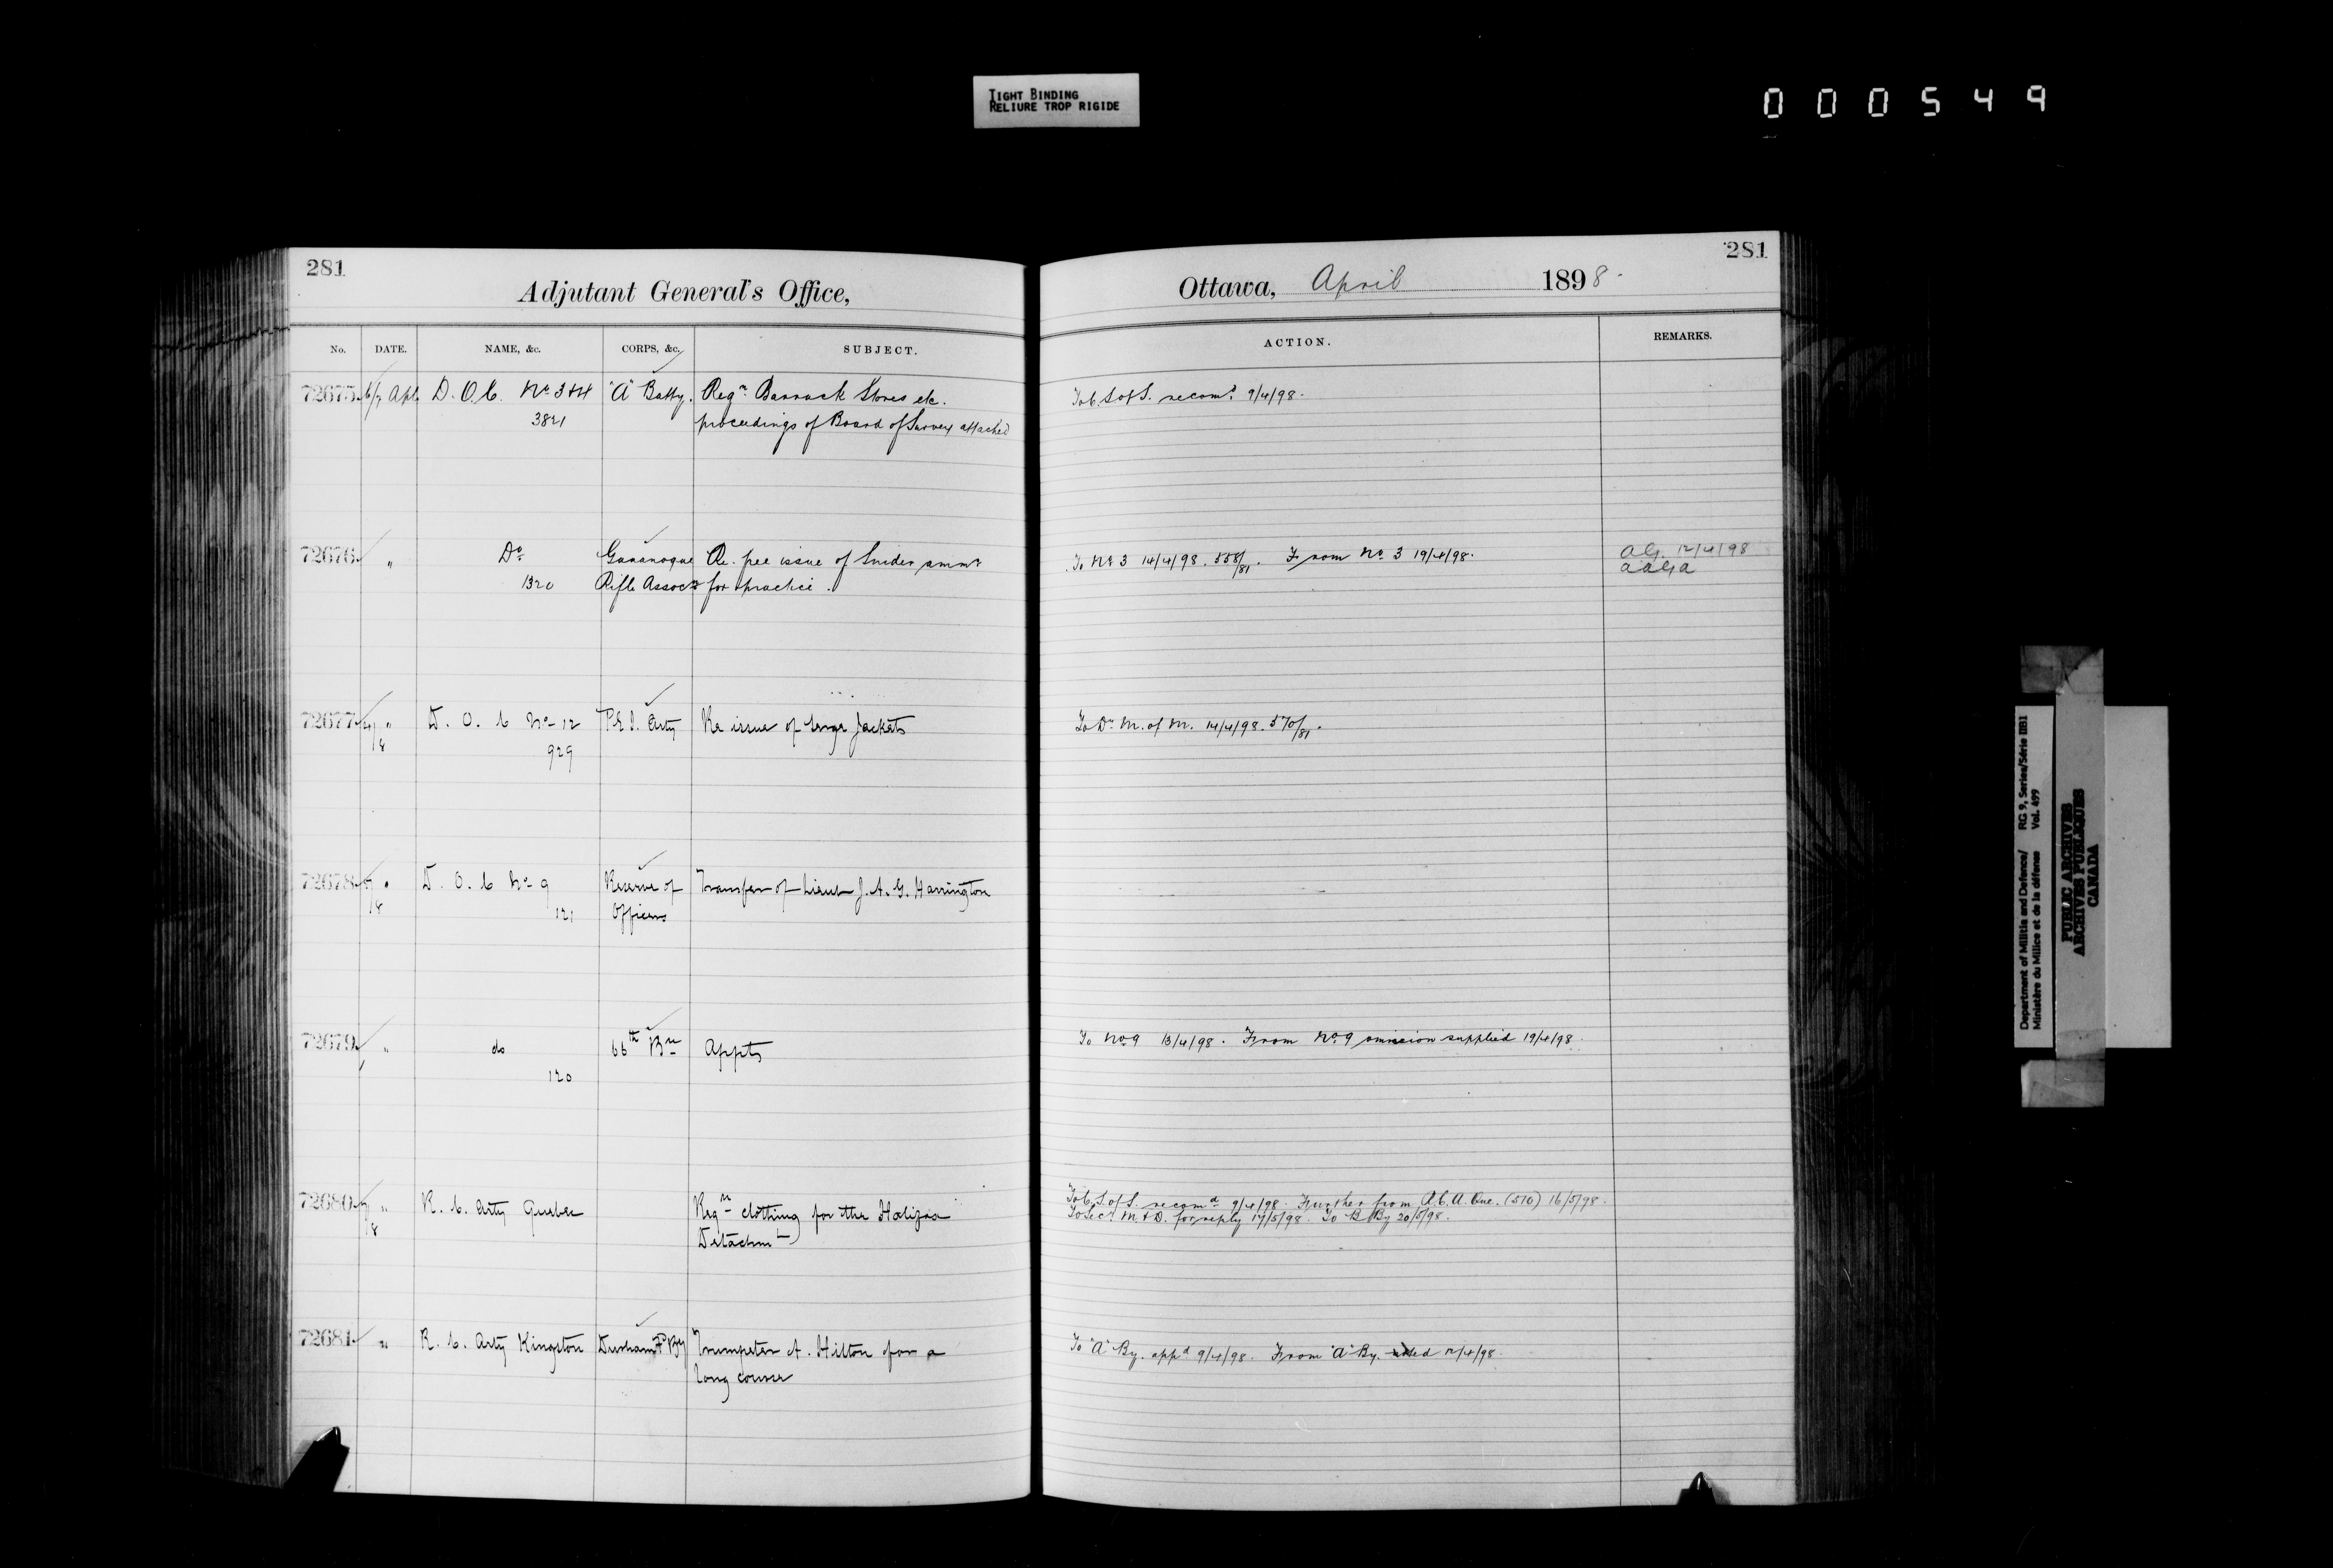 TIGHT BINDING
RELIURE TROP RIGIDE
000549
281
Adjutant General's Office,
No. DATE. NAME, &c. CORPS, &c. SUBJECT.
72675 6/7 Apl D.O.C. No 3 & 4 "A" Batty. Reqn Barrack Stores etc.
3821 proceedings of Board of Survey attached
72676 " Do Gananoque Re. free issue of Snider ammn
1320 Rifle Assocn for practice.
72677 " D.O.C No 12 P.E.I. Arty Re issue of serge Jackets
/8 929
72678 7 " D.O.C No 9 Reserve of Transfer of Lieut J.A.G. Harrington
/8 121 Officers
72679 " do 66th Bn Appts
120
72680 7 " R.C. Arty Quebec Reqn clothing for the Halifax
/8 Detachmt
72681 " R.C. Arty Kingston Durham F By Trumpeter A. Hilton for a
long course
281
Ottawa, April 1898
ACTION. REMARKS.
To C.S. of S. recomd 9/4/98.
To No 3 14/4/98. 558/81. From No 3 19/4/98. A.G. 12/4/98
A.A.G.A
To Dr. M. of M. 14/4/98. 570/81.
To No 9 13/4/98. From No 9 omission supplied 19/4/98
To C.S. of S. recomd 9/4/98. Further from R.C.A. Que. (510) 16/5/98.
To Secy M & D. for reply 17/5/98. To B By 20/5/98.
To "A" By. appd 9/4/98. From "A" By. 12/4/98
Department of Militia and Defence/ RG 9, Series/Série IIB1
Ministère du Milice et de la défense Vol. 499
PUBLIC ARCHIVES
ARCHIVES PUBLIQUES
CANADA